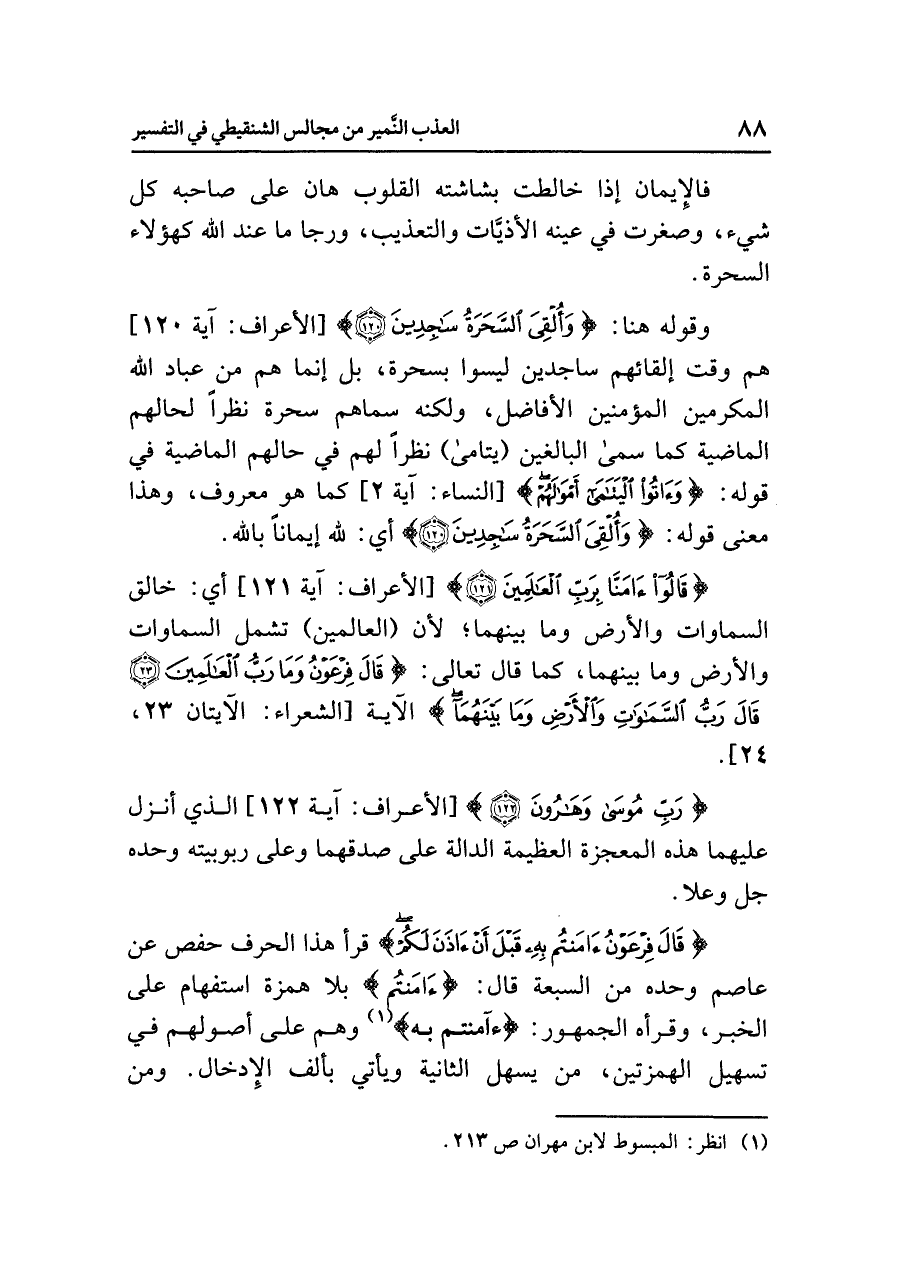 ٨٨ العذب النَّمير من مجالس الشنقيطي في التفسير
فالإِيمان إذا خالطت بشاشته القلوب هان على صاحبه كل
شيء، وصغرت في عينه الأذيَّات والتعذيب، ورجا ما عند الله كهؤلاء
السحرة.
وقوله هنا: ﴿ وَأُلْقِىَ ٱلسَّحَرَةُ سَـٰجِدِينَ ١٢٠﴾ [الأعراف: آية ١٢٠]
هم وقت إلقائهم ساجدين ليسوا بسحرة، بل إنما هم من عباد الله
المكرمين المؤمنين الأفاضل، ولكنه سماهم سحرة نظراً لحالهم
الماضية كما سمىٰ البالغين (يتامىٰ) نظراً لهم في حالهم الماضية في
قوله: ﴿ وَءَاتُوا۟ ٱلْيَتَـٰمَىٰٓ أَمْوَٰلَهُمْ ۖ﴾ [النساء: آية ٢] كما هو معروف، وهذا
معنى قوله: ﴿ وَأُلْقِىَ ٱلسَّحَرَةُ سَـٰجِدِينَ ١٢٠﴾ أي: لله إيماناً بالله.
﴿ قَالُوٓا۟ ءَامَنَّا بِرَبِّ ٱلْعَـٰلَمِينَ ١٢١ ﴾ [الأعراف: آية ١٢١] أي: خالق
السماوات والأرض وما بينهما؛ لأن (العالمين) تشمل السماوات
والأرض وما بينهما، كما قال تعالى: ﴿ قَالَ فِرْعَوْنُ وَمَا رَبُّ ٱلْعَـٰلَمِينَ ٢٣
قَالَ رَبُّ ٱلسَّمَـٰوَٰتِ وَٱلْأَرْضِ وَمَا بَيْنَهُمَآ ۖ ﴾ الآيـة [الشعراء: الآيتان ٢٣،
٢٤].
﴿ رَبِّ مُوسَىٰ وَهَـٰرُونَ ١٢٢ ﴾ [الأعـراف: آيـة ١٢٢] الـذي أنـزل
عليهما هذه المعجزة العظيمة الدالة على صدقهما وعلى ربوبيته وحده
جل وعلا.
﴿ قَالَ فِرْعَوْنُ ءَامَنتُم بِهِۦ قَبْلَ أَنْ ءَاذَنَ لَكُمْ ۖ ﴾ قرأ هذا الحرف حفص عن
عاصم وحده من السبعة قال: ﴿ ءَامَنتُم ﴾ بلا همزة استفهام على
الخبـر، وقـرأه الجمهـور: ﴿ءآمنتـم بـه﴾(١) وهـم علـى أصـولهـم فـي
تسهيل الهمزتين، من يسهل الثانية ويأتي بألف الإِدخال. ومن
(١) انظر: المبسوط لابن مهران ص ٢١٣.